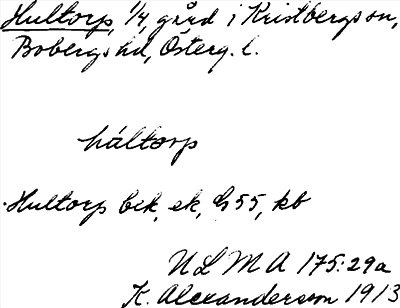 Hultorp, 1/4, gård i Kristbergs sn,
Bobergs hd, Österg. l.
håltorp
Hultorp bek, ek, G 55, kb
ULMA 175:29a
K. Alexandersson 1913